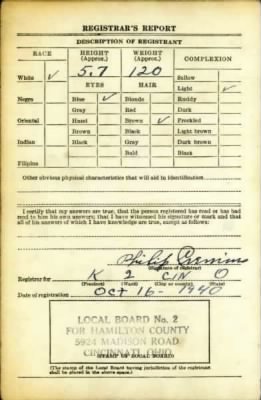 REGISTRAR'S REPORT
DESCRIPTION OF REGISTRANT
RACE HEIGHT (Approx.) WEIGHT (Approx.) COMPLEXION
5.7 120
White ✓ EYES HAIR Sallow
Light ✓
Negro Blue ✓ Blonde Ruddy
Gray Red Dark
Oriental Hazel Brown ✓ Freckled
Brown Black Light brown
Indian Black Gray Dark brown
Bald Black
Filipino
Other obvious physical characteristics that will aid in identification
I certify that my answers are true; that the person registered has read or has had
read to him his own answers; that I have witnessed his signature or mark and that
all of his answers of which I have knowledge are true, except as follows:
Philip
(Signature of registrar)
Registrar for K 2 CIN O
(Precinct) (Ward) (City or county) (State)
Date of registration Oct 16 - 1940
LOCAL BOARD No. 2
FOR HAMILTON COUNTY
5924 MADISON ROAD
CINCINNATI, OHIO
(STAMP OF LOCAL BOARD)
(The stamp of the Local Board having jurisdiction of the registrant
shall be placed in the above space.)